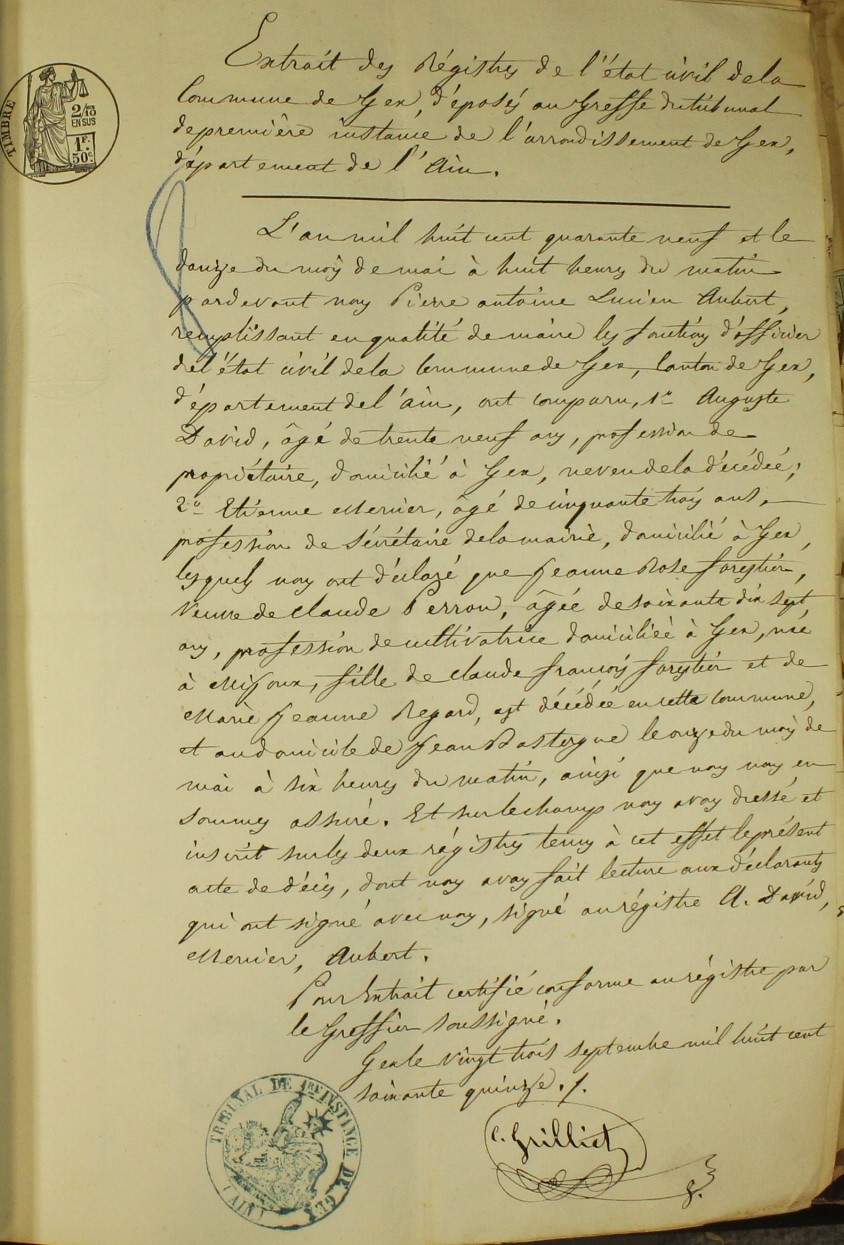 TIMBRE
2/10
EN SUS
1F.
50c
Extrait des Régistres de l'état civil de la
Commune de Gex, déposés au Greffe du tribunal
de première instance de l'arrondissement de Gex,
département de l'Ain.
L'an mil huit cent quarante neuf et le
douze du mois de mai à huit heures du matin
pardevant nous Pierre antoine Lucien Aubert,
remplissant en qualité de maire les fonctions d'officier
de l'état civil de la Commune de Gex, Canton de Gex,
département de l'ain, ont comparu, 1° Auguste
David, âgé de trente neuf ans, profession de
propriétaire, domicilié à Gex, neveu de la décédée;
2° Etienne Mernier, âgé de cinquante trois ans,
profession de Sécrétaire de la mairie, domicilié à Gex,
lesquels nous ont déclaré que Jeanne Rose forestier,
Veuve de Claude Perron, âgée de soixante dix sept
ans, profession de cultivatrice domiciliée à Gex, née
à Mijoux, fille de Claude françois forestier et de
Marie Jeanne Regard, est décédée en cette Commune,
et au domicile de Jean le onze du mois de
mai à six heures du matin, ainsi que nous nous en
sommes assuré. Et sur le champ nous avons dressé et
inscrit sur les deux régistres tenus à cet effet le présent
acte de décès, dont nous avons fait lecture aux déclarants
qui ont signé avec nous, signé au régistre A. David,
Mernier, Aubert.
Pour Extrait certifié conforme au régistre par
le Greffier soussigné.
Gex le vingt trois septembre mil huit cent
soixante quinze ./.
C. Grilliet
TRIBUNAL DE 1ERE INSTANCE DE GEX
(AIN)